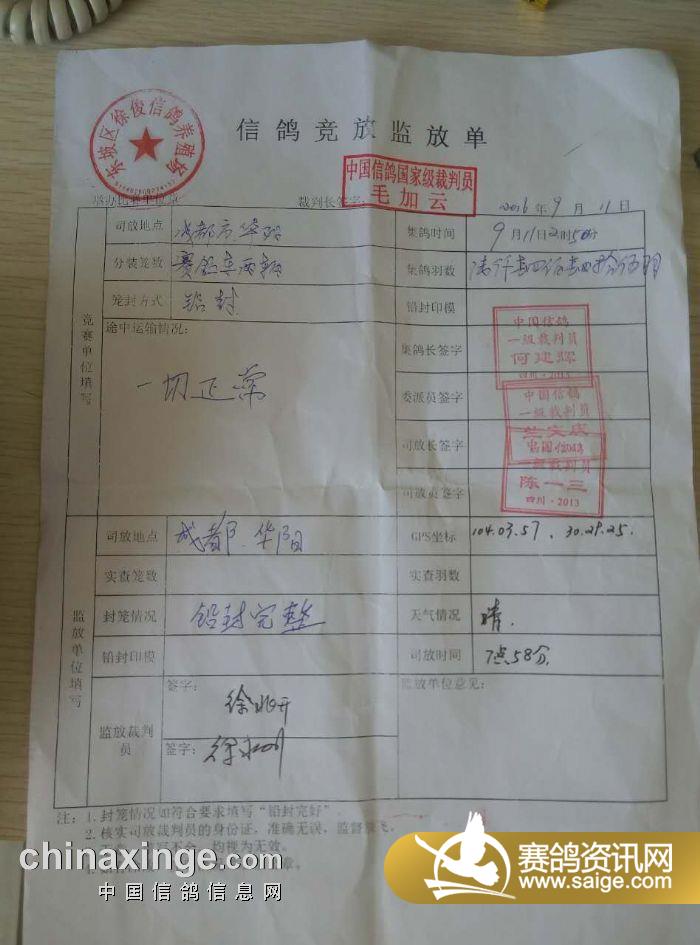 东坡区徐俊信鸽养殖场
信鸽竞放监放单
中国信鸽国家级裁判员
毛加云
裁判长签字:
2016年9月11日
竞赛单位填写
司放地点 成都市华阳 集鸽时间 9月11日2时50分
分装笼数 赛鸽车两辆 集鸽羽数
笼封方式 铅封 铅封印模
途中运输情况: 集鸽长签字
一切正常
委派员签字
司放长签字
司放员签字
中国信鸽
一级裁判员
何建辉
四川·2013
中国信鸽
一级裁判员
中国信鸽
一级裁判员
陈一三
四川·2013
监放单位填写
司放地点 成都华阳 GPS坐标 104.03.57、30.29.25.
实查笼数 实查羽数
封笼情况 铅封完整 天气情况 晴.
铅封印模 司放时间 7点58分
监放裁判员 签字: 监放单位意见:
签字:
注:1.封笼情况如符合要求填写“铅封完好”。
2.核实司放裁判员的身份证,准确无误,监督放飞。
均视为无效。
chinaxinge.com
中国信鸽信息网
赛鸽资讯网
www.saige.com